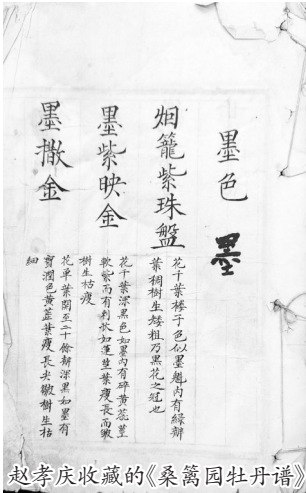 墨色 墨
烟籠紫珠盤
花千葉楼子色似墨魁内有綠辦
葉稠樹生矮粗乃黑花之冠也
墨紫映金
花千葉深黑色如墨内有碎黄蕊莖
軟紫而有刺狀如蓮莖葉瘦長而皺
樹生枯瘦
墨撒金
花單葉開至二十餘辦深黑如墨有
寳潤色黄蕋葉瘦長尖皺樹生枯
細
赵孝庆收藏的《桑篱园牡丹谱》